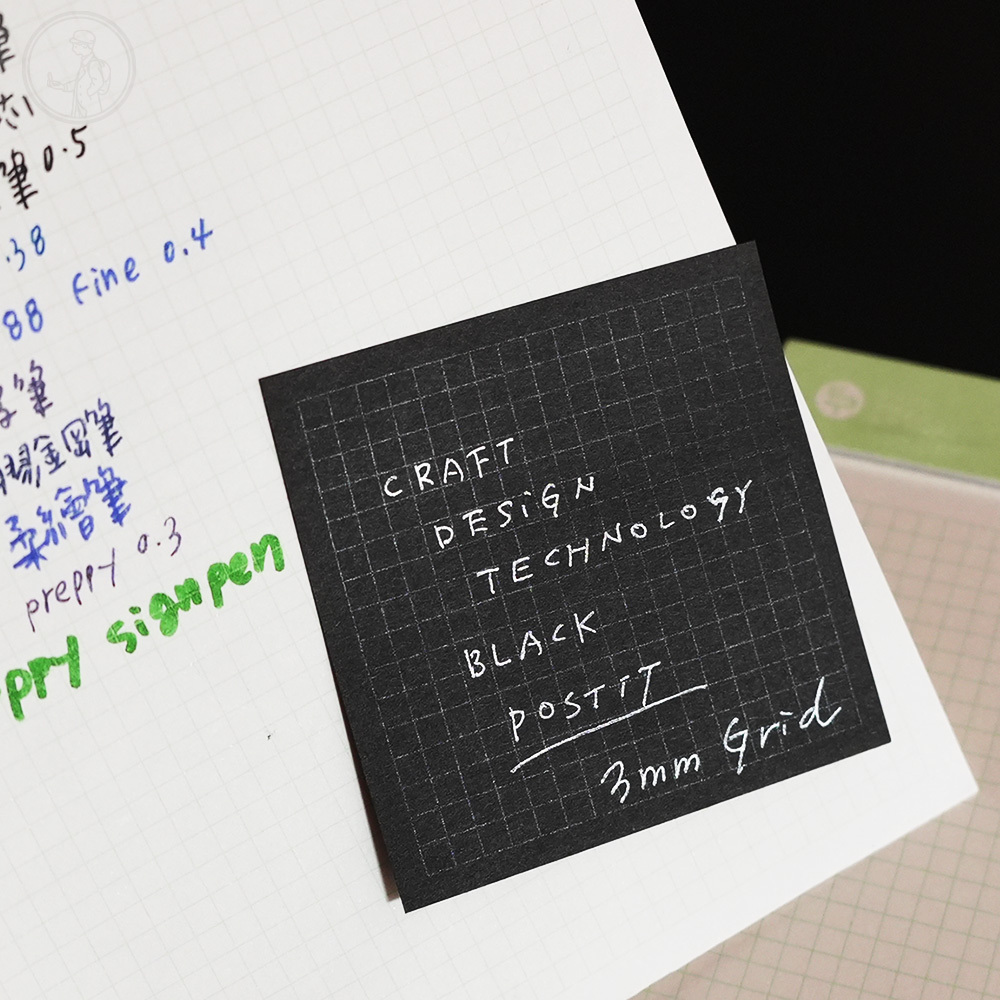 筆
芯
筆 0.5
.38
88 Fine 0.4
筆
金同筆
柔繪筆
preppy 0.3
ppy signpen
CRAFT
DESiGN
TECHNOLOGY
BLACK
POSTIT
3mm Grid